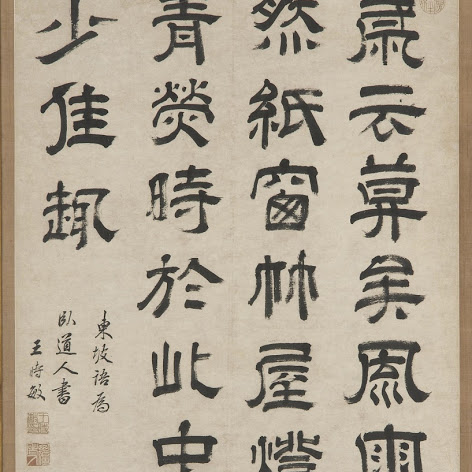 歲云莫矣風雨
然紙窗竹屋燈
青熒時於此中
少佳趣
東坡語為
臥道人書
王時敏